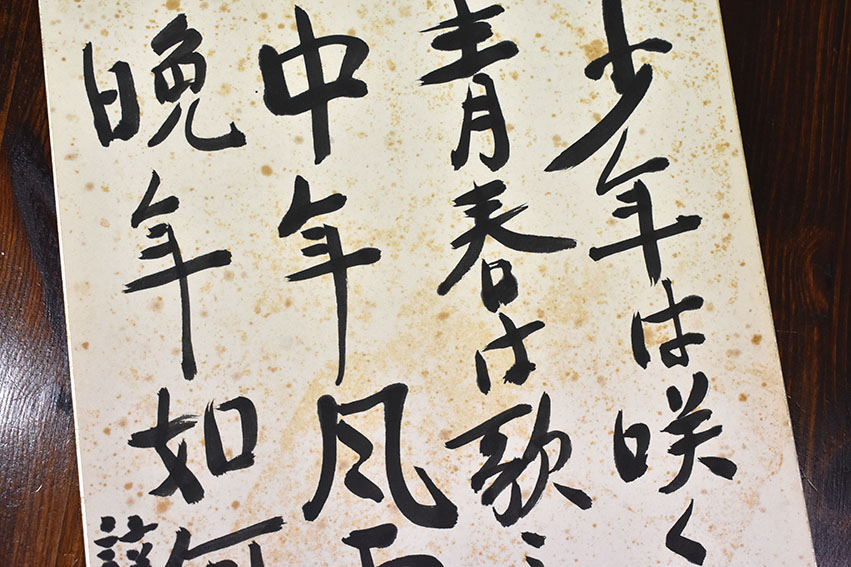 少年は咲く
青春は歌
中年風
晩年如何